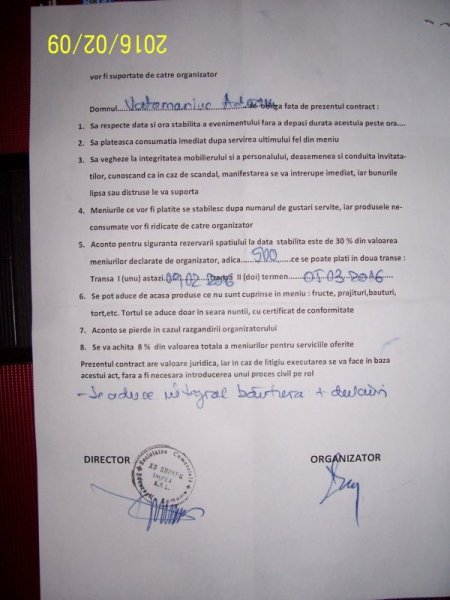 2016/02/09
vor fi suportate de catre organizator
Domnul..........se obliga fata de prezentul contract :
1. Sa respecte data si ora stabilita a evenimentului fara a depasi durata acestuia peste ora....
2. Sa plateasca consumatia imediat dupa servirea ultimului fel din meniu
3. Sa vegheze la integritatea mobilierului si a personalului, deasemenea si conduita invitata-
tilor, cunoscand ca in caz de scandal, manifestarea se va intrerupe imediat, iar bunurile
lipsa sau distruse le va suporta
4. Meniurile ce vor fi platite se stabilesc dupa numarul de gustari servite, iar produsele ne-
consumate vor fi ridicate de catre organizator
5. Aconto pentru siguranta rezervarii spatiului la data stabilita este de 30 % din valoarea
meniurilor declarate de organizator, adica....500.....ce se poate plati in doua transe :
Transa I (unu) astazi.09.02.2016 transa II (doi) termen....05.03.2016
6. Se pot aduce de acasa produse ce nu sunt cuprinse in meniu : fructe, prajituri,bauturi,
tort,etc. Tortul se aduce doar in seara nuntii, cu certificat de conformitate
7. Aconto se pierde in cazul razgandirii organizatorului
8. Se va achita 8 % din valoarea totala a meniurilor pentru serviciile oferite
Prezentul contract are valoare juridica, iar in caz de litigiu executarea se va face in baza
acestui act, fara a fi necesara introducerea unui proces civil pe rol
- Se aduce integral bautura + dulciuri
DIRECTOR ORGANIZATOR
Societatea Comerciala
IMPEX
S.R.L.